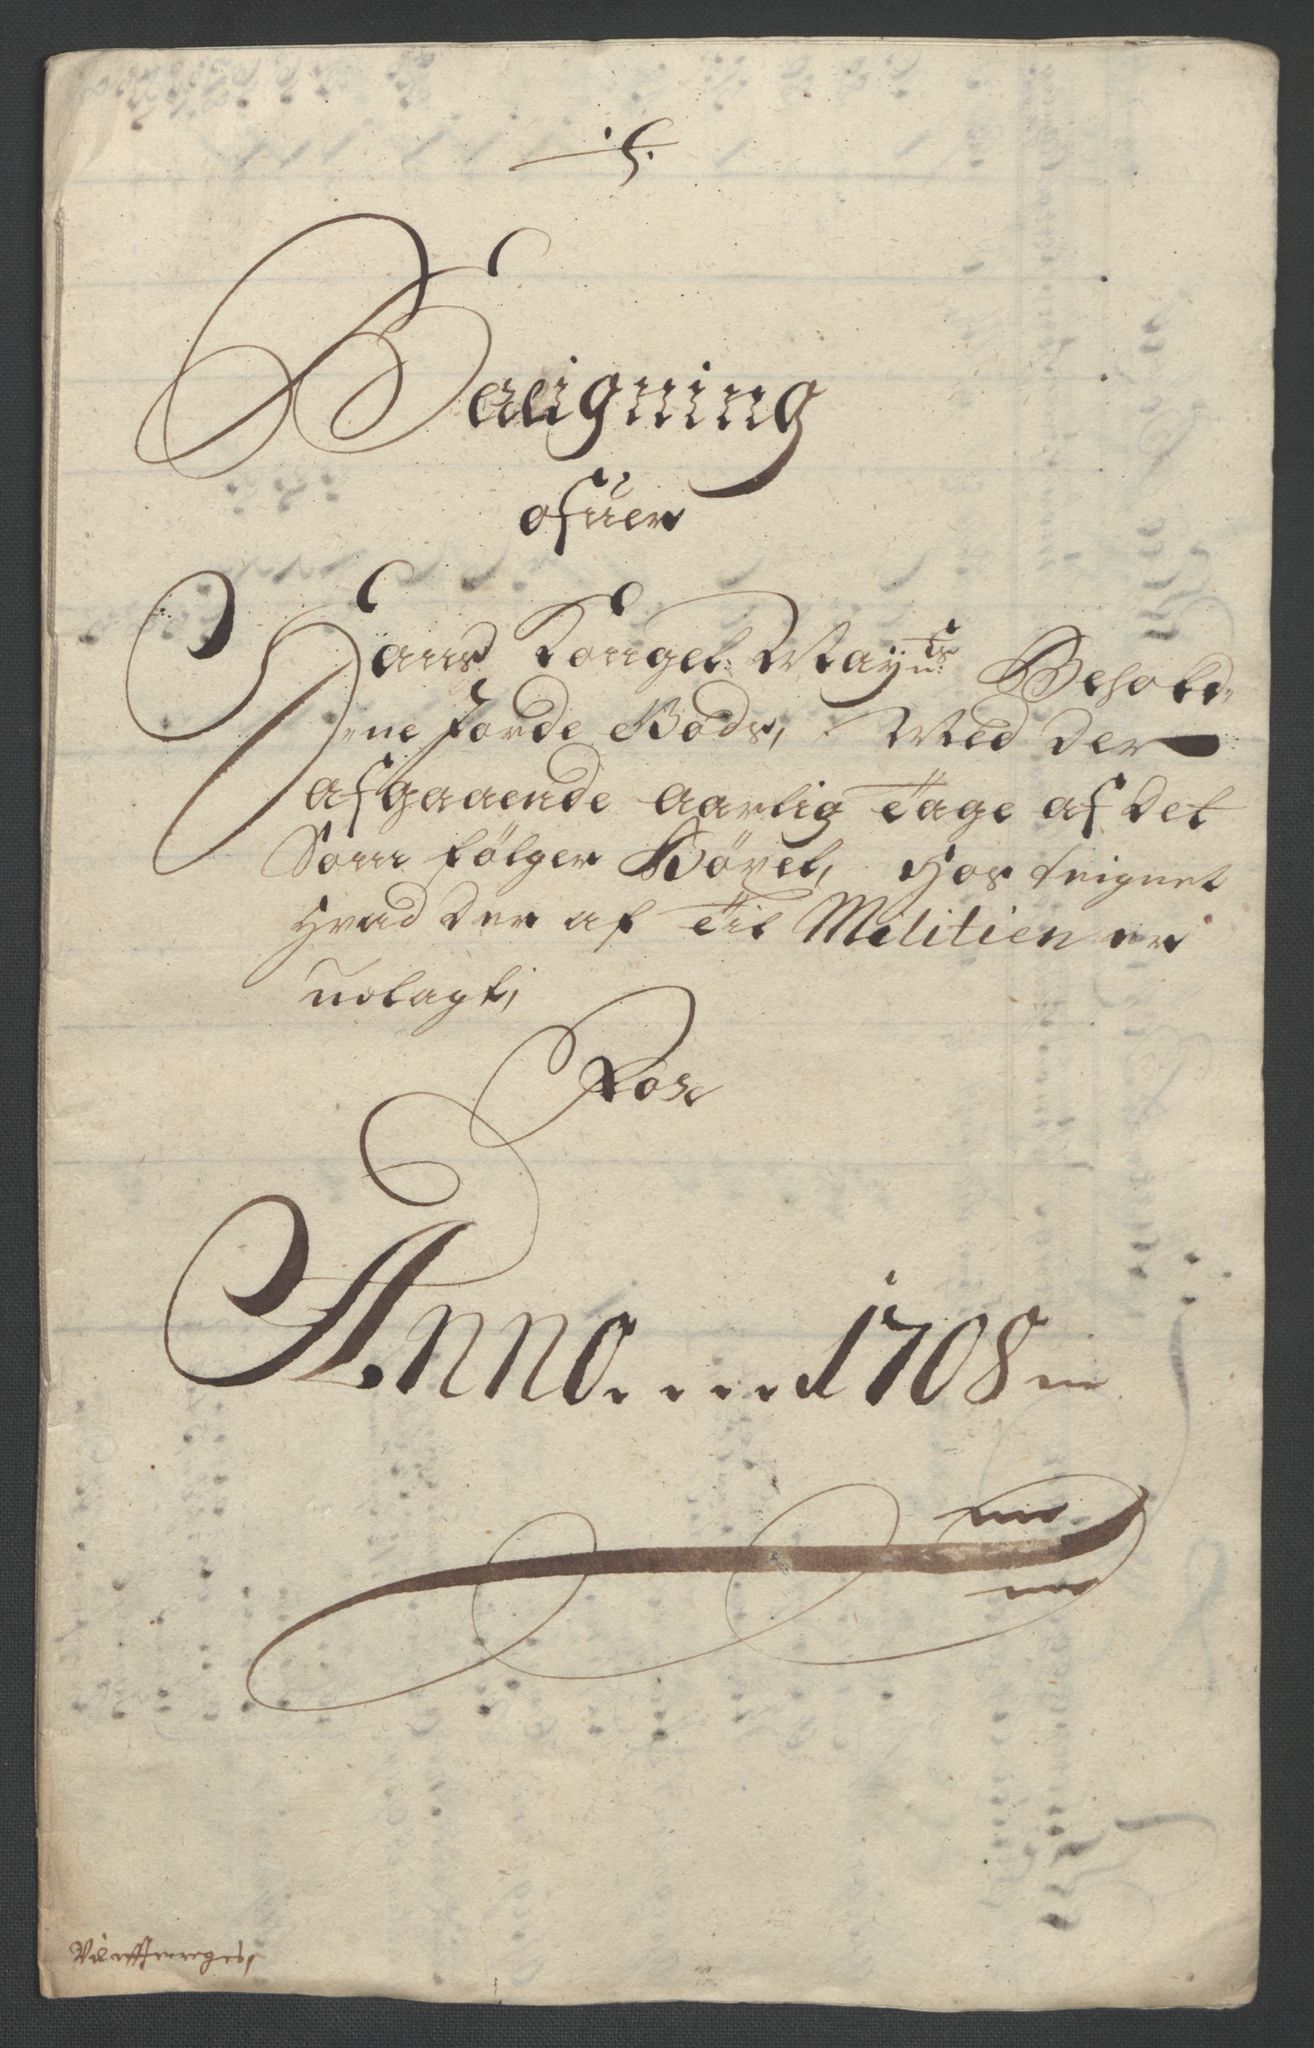 5.
Beligning
ofuer
Hans Kongel: May:ts Behold-
ene Jorde Gods, Med der
afgaaende aarlig Tage af det
Som følger Høyet, Hos teignet
Hvad der af Til Militien er
udlagt,
For
Anno....1708